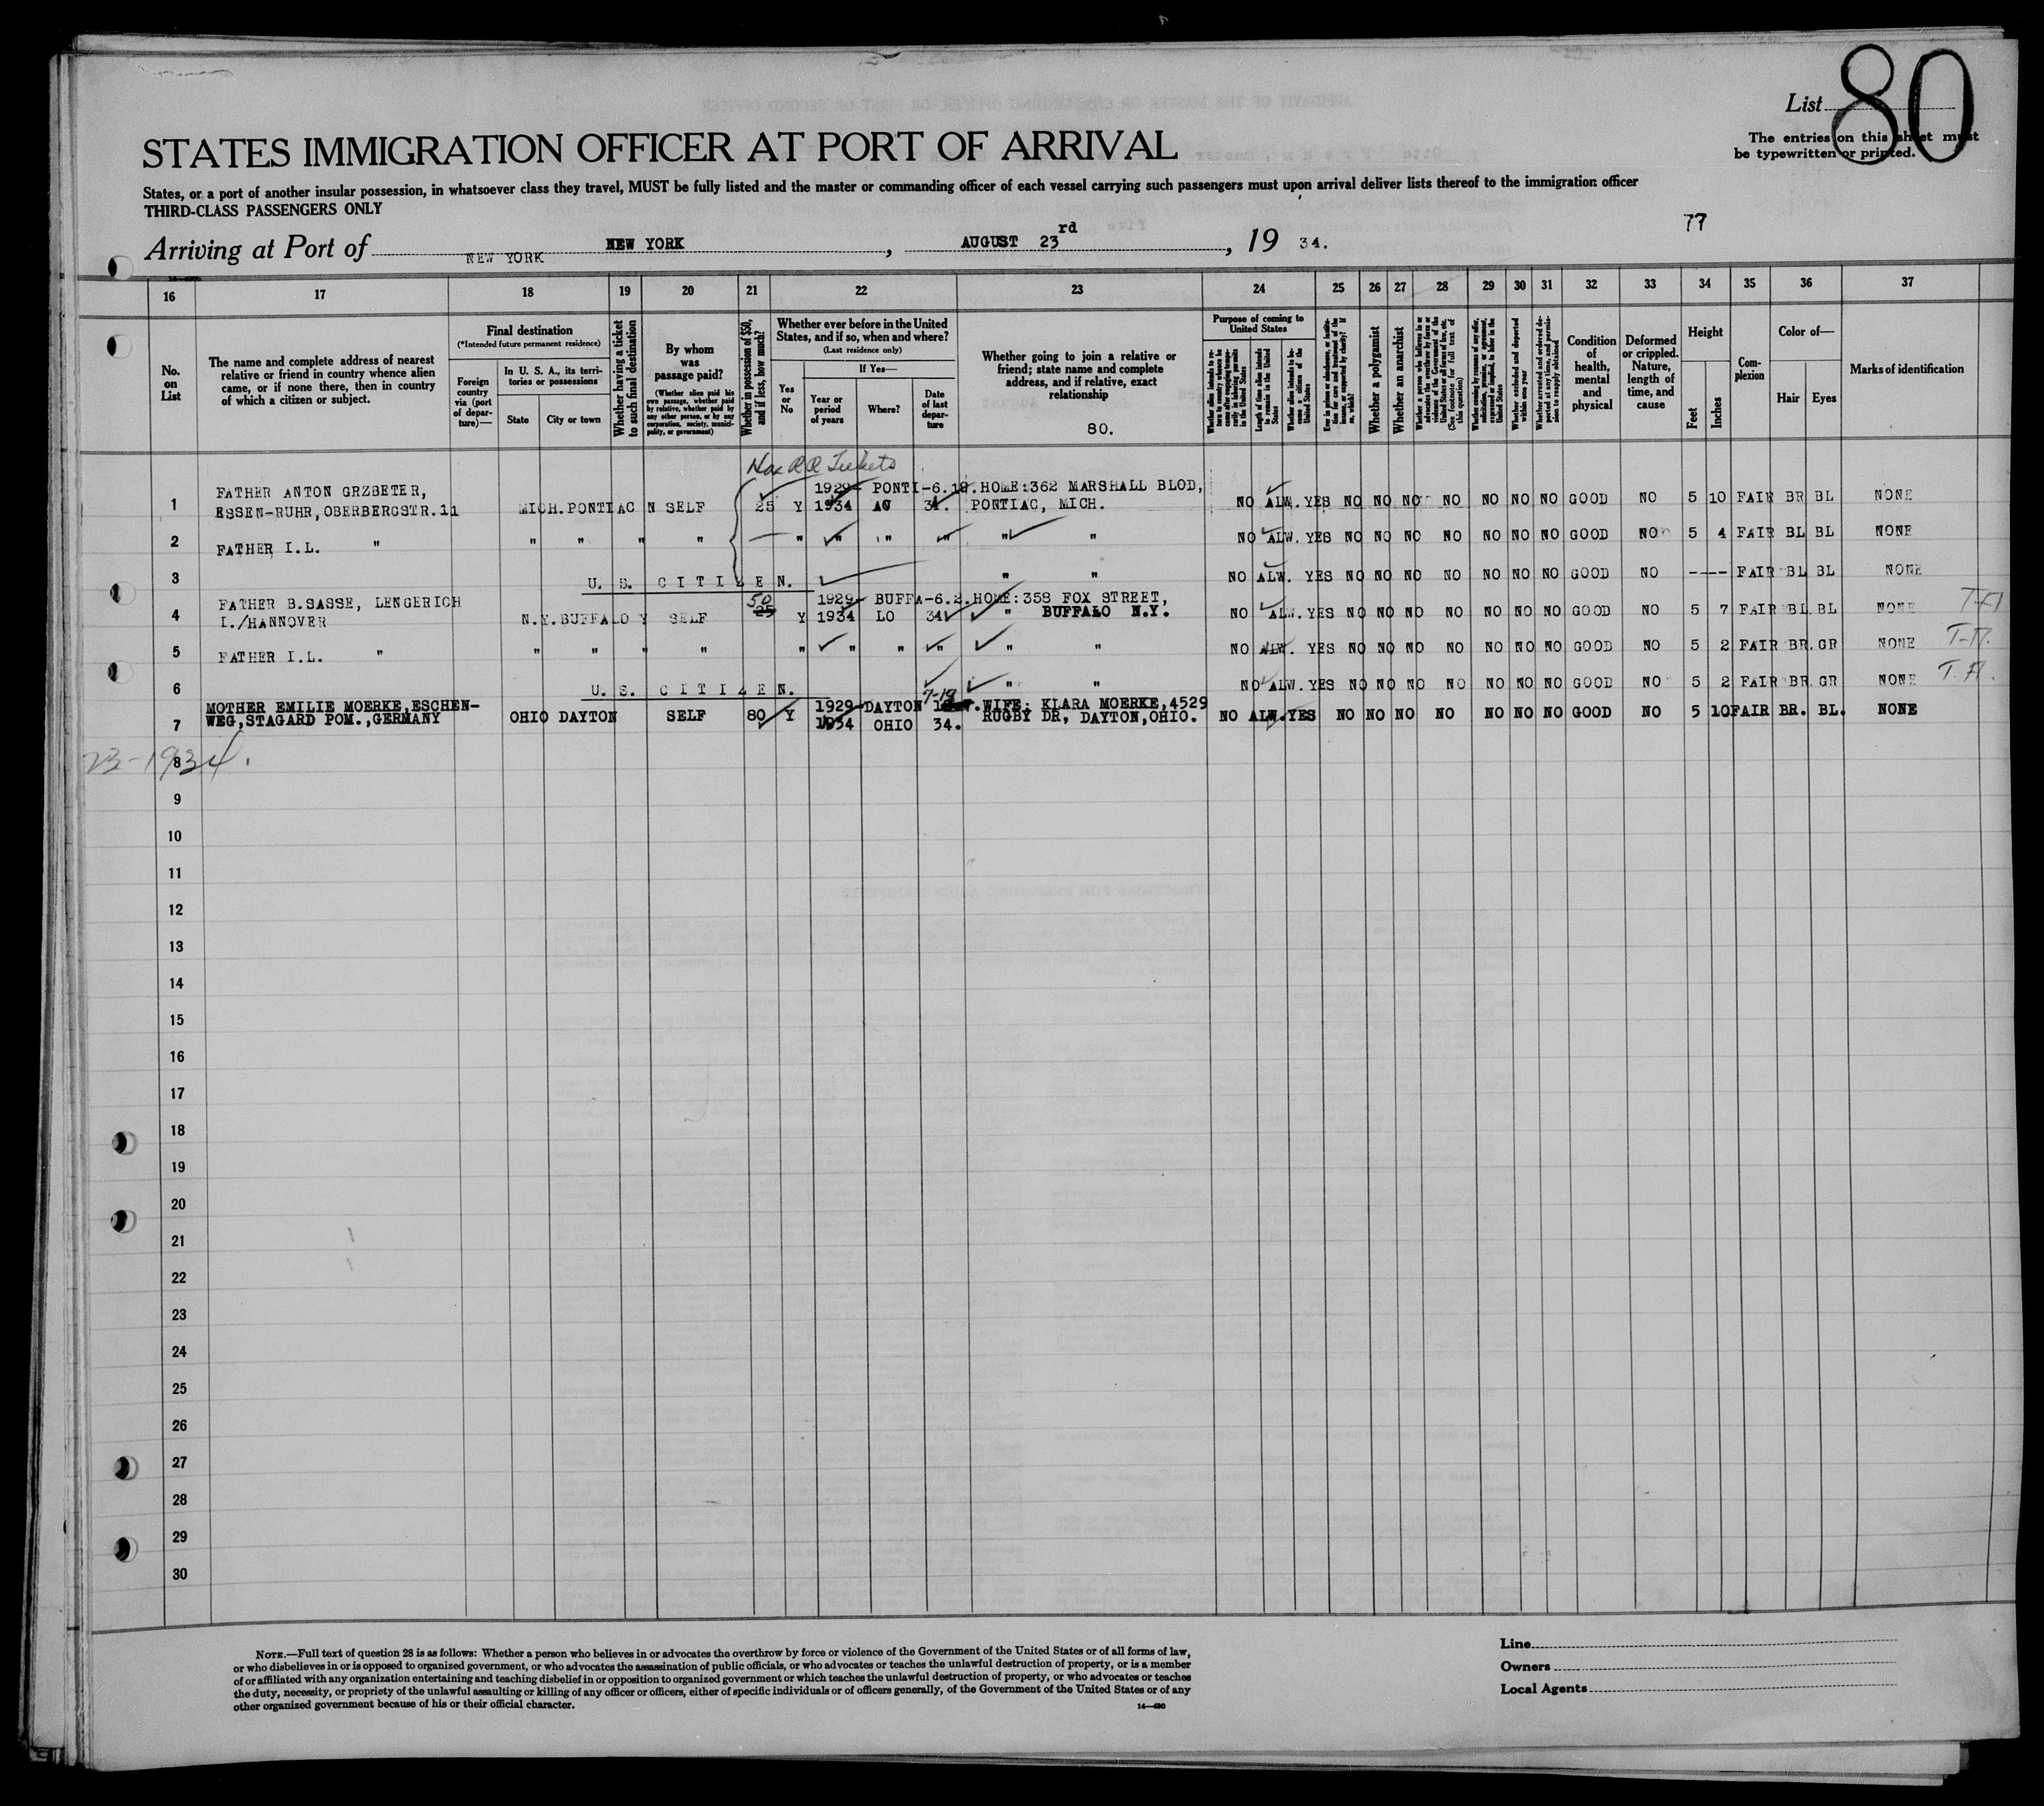 List 80
STATES IMMIGRATION OFFICER AT PORT OF ARRIVAL
The entries on this sheet must
be typewritten or printed.
States, or a port of another insular possession, in whatsoever class they travel, MUST be fully listed and the master or commanding officer of each vessel carrying such passengers must upon arrival deliver lists thereof to the immigration officer
THIRD-CLASS PASSENGERS ONLY
77
Arriving at Port of NEW YORK, AUGUST 23rd, 19 34.
NEW YORK
16 17 18 19 20 21 22 23 24 25 26 27 28 29 30 31 32 33 34 35 36 37
No. on List
The name and complete address of nearest relative or friend in country whence alien came, or if none there, then in country of which a citizen or subject.
Final destination
(*Intended future permanent residence)
Foreign country via (port of departure)—
In U. S. A., its territories or possessions
State
City or town
Whether having a ticket to such final destination
By whom was passage paid?
(Whether alien paid his own passage, whether paid by relative, whether paid by any other person, or by any corporation, society, municipality, or government)
Whether in possession of $50, and if less, how much?
Whether ever before in the United States, and if so, when and where?
(Last residence only)
Yes or No
If Yes—
Year or period of years
Where?
Date of last departure
Whether going to join a relative or friend; state name and complete address, and if relative, exact relationship
80.
Purpose of coming to United States
Length of time alien intends to remain in the United States
Whether alien intends to become a citizen of the United States
Whether a polygamist
Whether an anarchist
Whether excluded and deported within one year
Condition of health, mental and physical
Deformed or crippled. Nature, length of time, and cause
Height
Feet
Inches
Complexion
Color of—
Hair
Eyes
Marks of identification
RR Tickets
1 FATHER ANTON GRZBETER, ESSEN-RUHR, OBERBERGSTR.11 MICH. PONTIAC N SELF 25 Y 1929- 1934 PONTI- AC 6.19. 34. HOME:362 MARSHALL BLOD, PONTIAC, MICH. NO ALW. YES NO NO NO NO NO NO NO GOOD NO 5 10 FAIR BR BL NONE
2 FATHER I.L. " " " " " — " " " " " " NO ALW. YES NO NO NO NO NO NO NO GOOD NO 5 4 FAIR BL BL NONE
3 U. S. CITIZEN. " " NO ALW. YES NO NO NO NO NO NO NO GOOD NO ---- FAIR BL BL NONE
4 FATHER B.SASSE, LENGERICH I./HANNOVER N.Y. BUFFALO Y SELF 50 25 Y 1929- 1934 BUFFA- LO 6.2. 34 HOME:358 FOX STREET, " BUFFALO N.Y. NO ALW. YES NO NO NO NO NO NO NO GOOD NO 5 7 FAIR BL. BL NONE
5 FATHER I.L. " " " " " " " " " " " NO ALW. YES NO NO NO NO NO NO NO GOOD NO 5 2 FAIR BR. GR NONE
6 U. S. CITIZEN. " " NO ALW. YES NO NO NO NO NO NO NO GOOD NO 5 2 FAIR BR. GR NONE
7 MOTHER EMILIE MOERKE, ESCHEN- WEG, STAGARD POM., GERMANY OHIO DAYTON SELF 80 Y 1929- 1934 DAYTON OHIO 7-19 34. WIFE: KLARA MOERKE, 4529 RUGBY DR, DAYTON, OHIO. NO ALW. YES NO NO NO NO NO NO NO GOOD NO 5 10 FAIR BR. BL. NONE
23-1934.
8
9
10
11
12
13
14
15
16
17
18
19
20
21
22
23
24
25
26
27
28
29
30
NOTE.—Full text of question 28 is as follows: Whether a person who believes in or advocates the overthrow by force or violence of the Government of the United States or of all forms of law,
or who disbelieves in or is opposed to organized government, or who advocates the assassination of public officials, or who advocates or teaches the unlawful destruction of property, or is a member
of or affiliated with any organization entertaining and teaching disbelief in or opposition to organized government or which teaches the unlawful destruction of property, or who advocates or teaches
the duty, necessity, or propriety of the unlawful assaulting or killing of any officer or officers, either of specific individuals or of officers generally, of the Government of the United States or of any
other organized government because of his or their official character.
Line
Owners
Local Agents